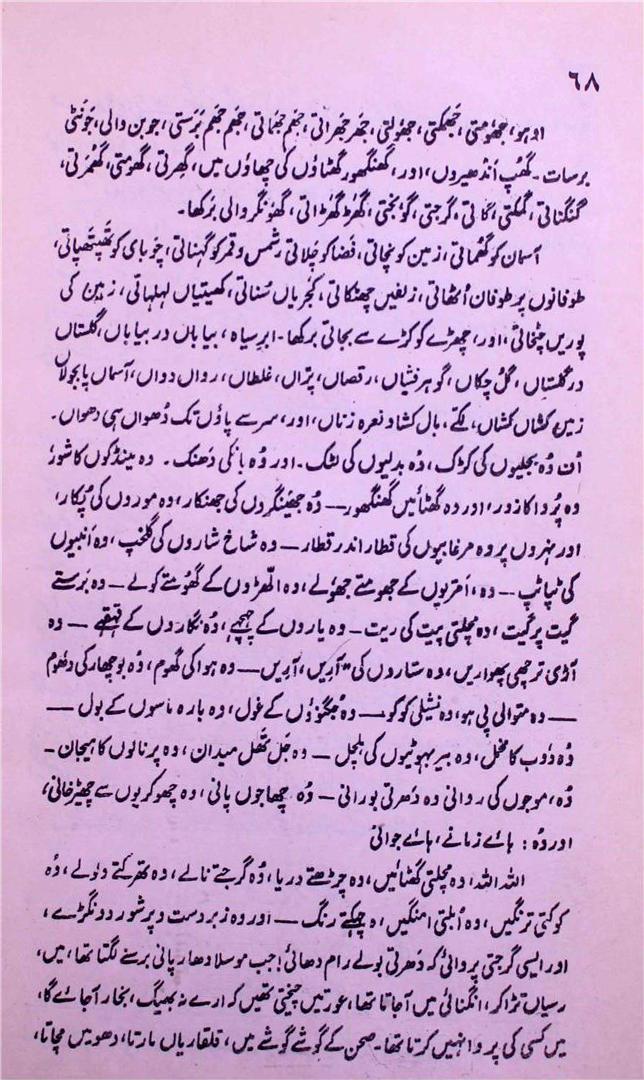 ۶۸
اوہو، جھومتی، جھمکتی، جھولتی، جھر جھراتی، جھم جھماتی، جھم جھم برستی، جوبن والی، چونٹی
برسات۔ گھپ اندھیروں، اور، گھنگھور گھٹاؤں کی چھاؤں میں، گھرتی، گھومتی، گھمرتی،
گنگناتی، گمکتی، گاتی، گرجتی، گونجتی، گھڑ گھڑاتی، گھونگر والی برکھا۔
آسمان کو گھماتی، زمین کو نچاتی، فضا کو چلاتی، شمس و قمر کو گہناتی، چوبای کو تھپتھپاتی،
طوفانوں پر طوفان اُٹھاتی، زلفیں چھٹکاتی، کجریاں سُناتی، کھیتیاں لہلہاتی، زمین کی
پوریں چٹخاتی، اور، چھڑے کو کڑے سے بجاتی برکھا۔ ابرِ سیاہ، بیاباں در بیاباں، گلستاں
در گلستاں، گل چکاں، گوہر فشاں، رقصاں، پرّاں، غلطاں، رواں دواں، آسماں پابجولاں
زمین کشاں کشاں، لکّے، بال کشا و نعرہ زناں، اور، سر سے پاؤں تک دھواں ہی دھواں۔
اُن وُہ بجلیوں کی کڑک، وُہ بدلیوں کی لٹک۔ اور وُہ بانکی دَھنک۔ وہ مینڈکوں کا شور،
وہ پُروا کا زور، اور وہ گھٹائیں گھنگھور — وُہ جھینگروں کی جھنکار، وہ موروں کی پُکار،
اور نہروں پر وہ مرغابیوں کی قطار اندر قطار — وہ شاخ شاروں کی گلخپ، وہ اَنبیوں
کی ٹپا ٹپ — وہ، اَمریوں کے جھومتے جھولے، وہ الّھڑوں کے گھُومتے کولے — وہ برستے
گیت پر گیت، وہ مچلتی پیت کی ریت — وہ یاروں کے چہچہے، وُہ نگاروں کے قہقہے — وہ
آڑی ترچھی پھواریں، وہ ستاروں کی "آریں، آریں — وہ ہوا کی گھوم، وُہ بوچھار کی دھُوم
— وہ متوالی پی ہو، وہ نشیلی کوکو — وہ جگنوؤں کے غول، وہ بارہ ماسوں کے بول —
وُہ دُوب کا مخمل، وہ بیر بہوٹیوں کی ہلچل — وہ جَل تھَل میدان، وہ پرنالوں کا ہیجان —
وُہ، موجوں کی روانی وہ دَھرتی بورانی — وُہ چھاجوں پانی، وہ چھوکریوں سے چھیڑخانی،
اور وُہ: ہائے زمانے، ہائے جوانی
اللہ اللہ! وہ مچلتی گھٹائیں، وہ چڑھتے دریا، وُہ گرجتے نالے، وہ تھرکتے ولولے، وُہ
کوکتی ترنگیں، وہ اُبلتی امنگیں، وہ چہکتے رنگ — اور وہ زبردست و پرشور دونگڑے،
اور ایسی گرجتی پروائی کہ دَھرتی بولے رام دھائی! جب موسلا دھار پانی برسنے لگتا تھا، میں،
رسیاں تڑا کر، انگنائی میں آجاتا تھا، عورتیں چیختی تھیں کہ ارے نہ بھیگ، بخار آجائے گا،
میں کسی کی پروا نہیں کرتا تھا۔ صحن کے گوشے گوشے میں، قلقاریاں مارتا، دھومیں مچاتا،